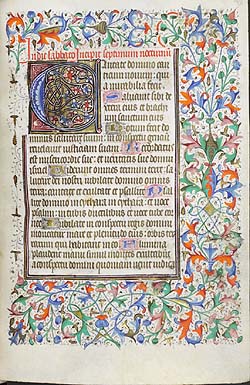 In die sabbato incipit septimum nocturnū
Cantate domino can
ticum nouum: qui
a mirabilia fecit
Saluauit sibi de
xtera eius et brachi
um sanctum eius
Notum fecit do
minus salutare suum: in conspectu genciū
reuelauit iusticiam suam Recordatus
est misericordie sue: et ueritatis sue domui
israel Uiderunt omnes termini terre: sa
lutare dei nostri Iubilate domino omnis
terra: cantate et exultate et psallite Psal
lite domino in cythara in cythara et uoce
psalmi: in tubis ductilibus et uoce tube cor
nee Iubilate in conspectu regis domini
moueatur mare et plenitudo eius: orbis ter
rarum qui habitant in eo Flumina
plaudent manu simul montes exultabūt
a conspectu domini quoniam uenit iudica